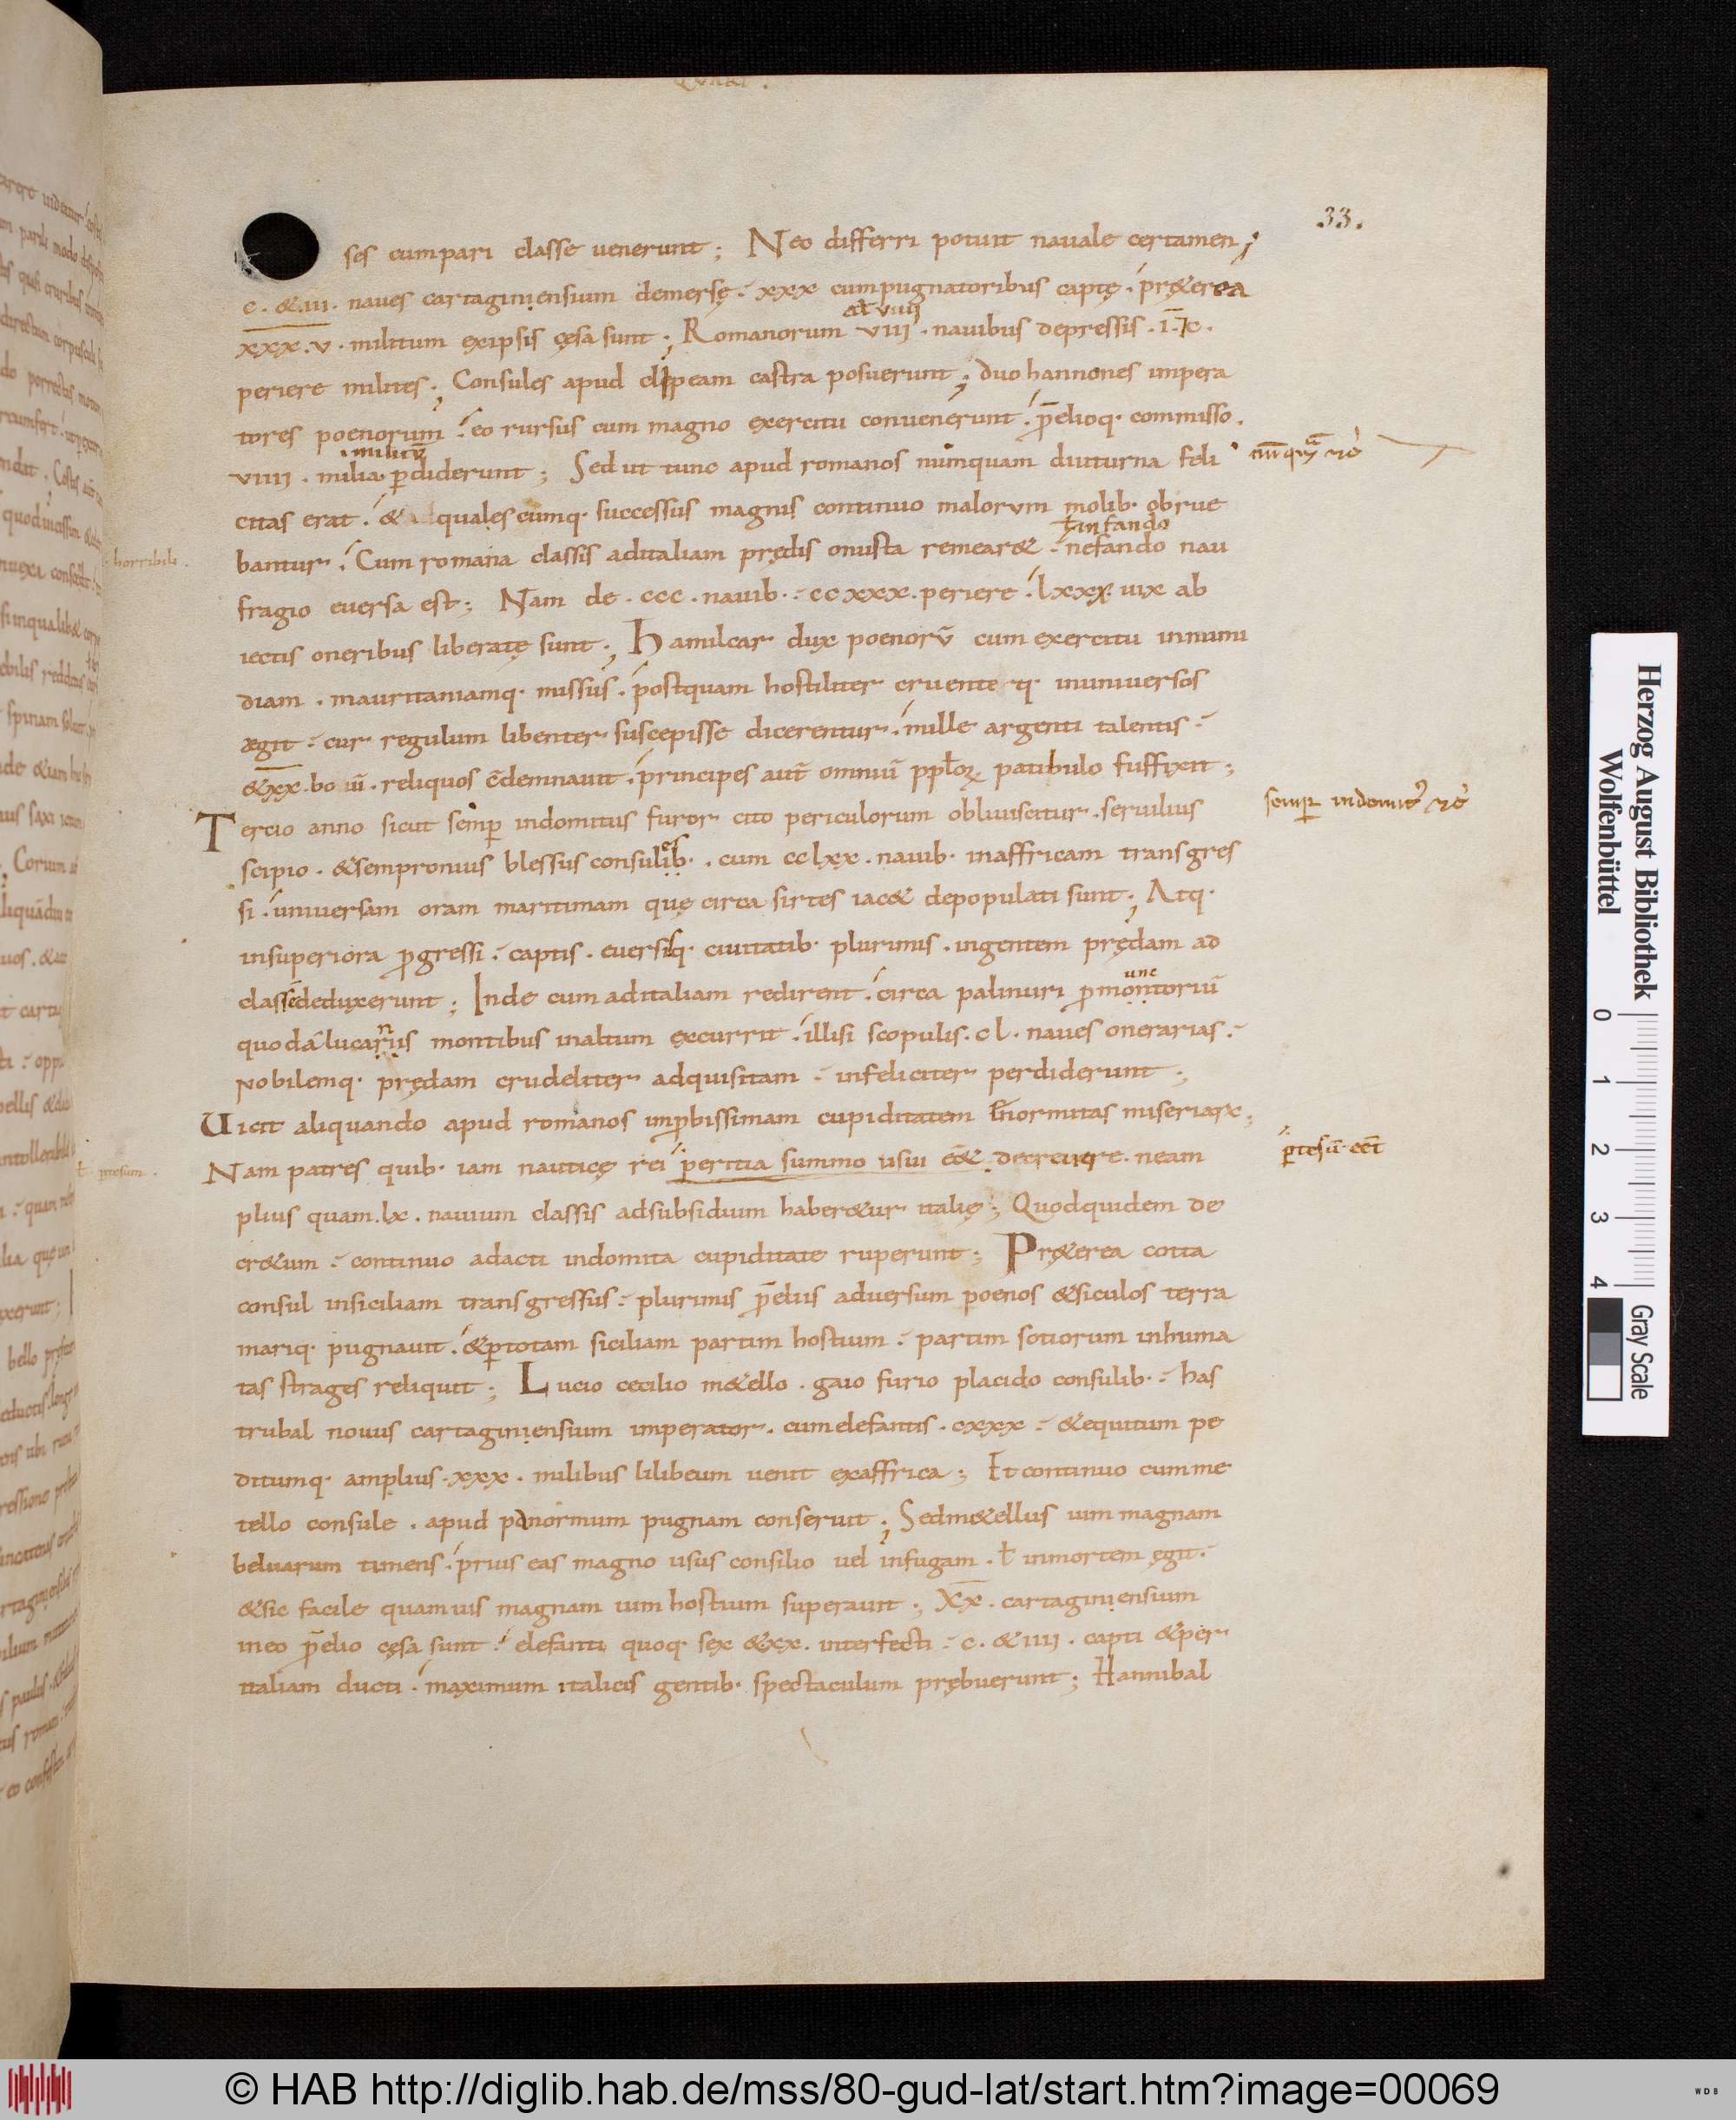 33.
ses cumpari classe uenerunt; Neo differri potuit nauale certamen;
c. &iii. naues cartaginiensium demersę. xxx cumpugnatoribus captę. pręt&erea
at viiii
xxx.v. militum exipsis cęsa sunt; Romanorum viii. nauibus depressis. ī. ⁊c.
periere milites; Consules apud clipeam castra posuerunt; duo hannones impera
tores poenorum. eo rursus cum magno exercitu conuenerunt. p̄elioq· commisso.
militū
viiii. milia ꝑdiderunt; Sed ut tunc apud romanos numquam diuturna feli
citas erat. & quales cumq· successus magnis continuo malorum molib· obrue
ƚ infando
bantur. Cum romana classis aditaliam prędis onusta remear&. nefando nau
fragio euersa est; Nam de. ccc. nauib·. ccxxx. periere. lxxx uix ab
iectis oneribus liberatę sunt; Hamilcar dux poenorū cum exercitu innumi
diam. mauritaniamq· missus. postquam hostiliter cruenterq· inuniuersos
ægit. cur regulum libenter suscepisse dicerentur. mille argenti talentis.
&xx. bo uū. reliquos c̄demnauit. principes aut̄ omniū pplōꝝ patibulo suffixit;
Tercio anno sicut semꝑ indomitus furor cito periculorum obliuiscitur. seruilius
es
scipio. &sempronius blessus consulib·. cum cclxx. nauib· inaffricam transgres
si. uniuersam oram maritimam quę circa sirtes iac& depopulati sunt; Atq·
insuperiora ꝓgressi. captis. euersisq· ciuitatib· plurimis. ingentem prędam ad
unc
classēdeduxerunt; Inde cum aditaliam redirent. circa palinuri ꝓmontoriū
n
quod a lucariis montibus inaltum excurrit. illisi scopulis. cl. naues onerarias.
Nobilemq· prędam crudeliter adquisitam. infeliciter perdiderunt;
Uicit aliquando apud romanos imꝓbissimam cupiditatem enormitas miseriarꝝ;
Nam patres quib· iam nauticę rei ꝑeritia summo usui ēē& decreuere. neam
plius quam. lx. nauium classis adsubsidium haber&ur italię; Quodquidem de
cr&um. continuo adacti indomita cupiditate ruperunt; Pręt&erea cotta
consul insiciliam transgressus. plurimis p̄eliis aduersum poenos &siculos terra
mariq· pugnauit. &ꝑtotam siciliam partim hostium. partim sotiorum inhuma
tas strages reliquit; Lucio cecilio m&ello. gaio furio placido consulib·. has
trubal nouus cartaginiensium imperator. cumelefantis. cxxx. &equitum pe
ditumq· amplius. xxx. milibus lilibeum uenit exaffrica; Et continuo cumme
tello consule. apud panormum pugnam conseruit; Sedm&ellus uim magnam
beluarum timens. prius eas magno usus consilio uel infugam. ƚ inmortem ęgit.
&sic facile quamuis magnam uim hostium superauit; xx. cartaginiensium
ineo p̄elio cęsa sunt. elefanti quoq· sex &xx. interfecti. c. &iiii. capti &per
italiam ducti. maximum italicis gentib· spectaculum prębuerunt; Hannibal
semꝑ indomit᷒
Herzog August Bibliothek
Wolfenbüttel
0 1 2 3 4
Gray Scale
© HAB http://diglib.hab.de/mss/80-gud-lat/start.htm?image=00069
WDB